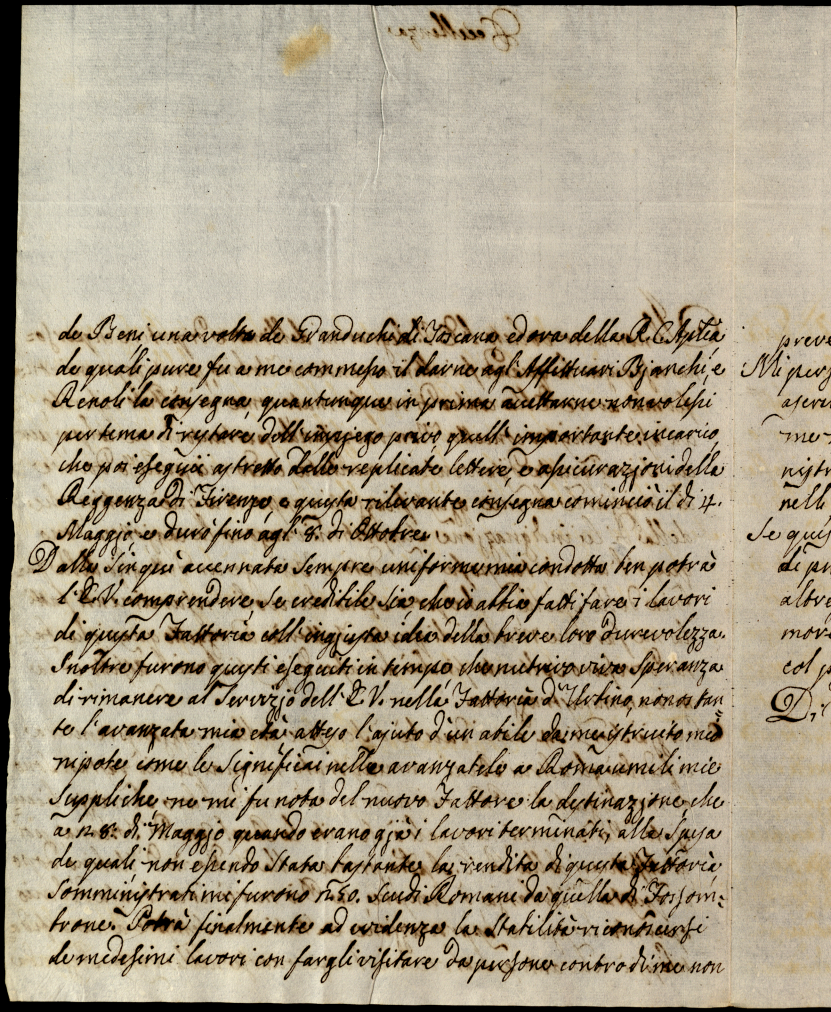 de Beni una volta de Granduchi di Toscana ed ora della R. C. Aptca
de quali pure fu a me commesso il darne agl' Affittuari Bianchi, e
Renoli la consegna, quantunque in prima accettarne non volessi
per tema di rystare dell' impiego privo quell' importante incarico
che poi eseguii astretto dalle replicate lettere, e assicurazioni della
Reggenza di Firenze, e questa rilevante consegna cominciò il di 4.
Maggio e durò fino agl' 8. di Ottobre.
Dalla sinquì accennata sempre uniforme mia condotta ben potrà
l' E. V. comprendere, se credibile sia che io abbia fatti fare i lavori
di questa Fattoria coll' ingiusta idea della breve loro durevolezza.
Inoltre furono questi eseguiti in tempo, che nutrivo viva speranza
di rimanere al servizio dell' E. V. nella Fattoria d' Urbino, nonostan
te l' avanzata mia età atteso l' ajuto d' un abile da me istruito mio
nipote, come le significai nelle avanzatele a Roma umili mie
suppliche, ne mi fu nota del nuovo Fattore la destinazione che
a n. 8. di Maggio quando erano già i lavori terminati, alla spesa
de quali non essendo stata bastante la rendita di questa Fattoria
somministrati mi furono n. 50. Scudi Romani da quella di Fossom=
brone. Potrà finalmente ad evidenza la stabilità riconoscersi
de medesimi lavori con fargli visitare da persone contro di me non
preve
Mi pers
me
nistr
nell
Se ques
di pr
altre
mor
col p